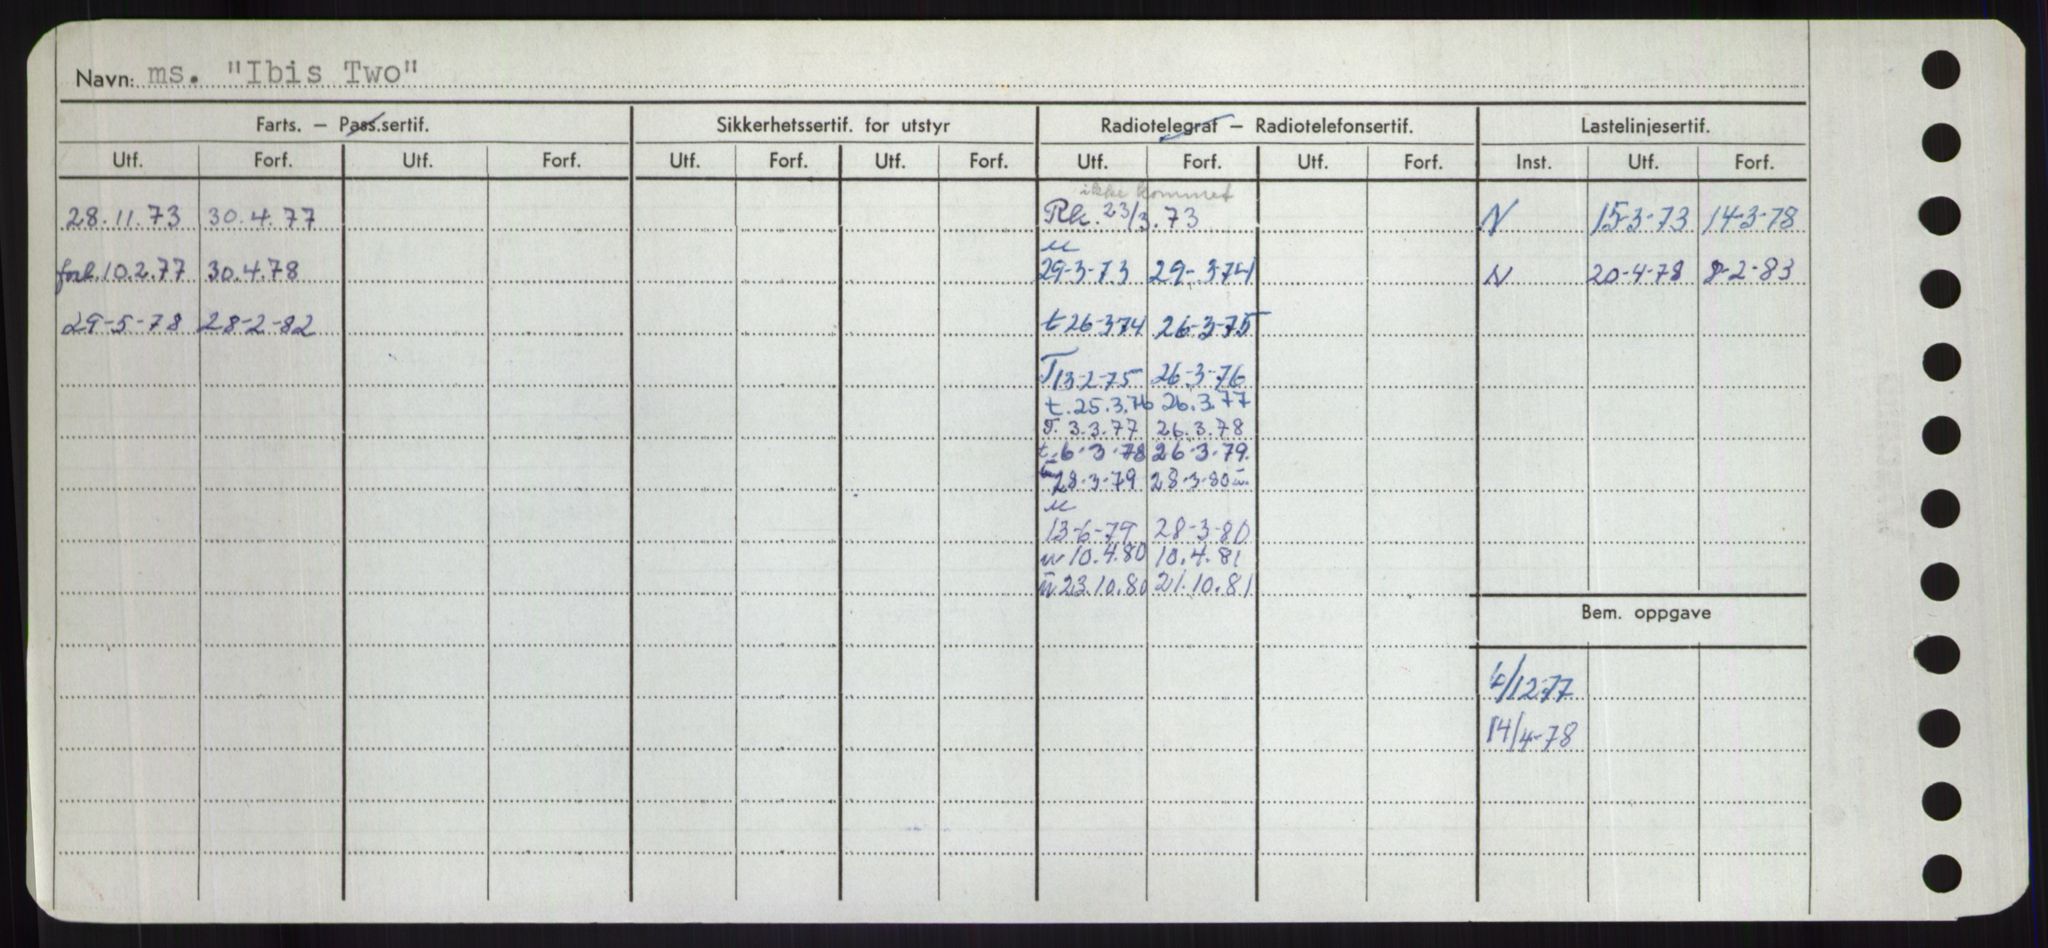 Navn: ms. "Ibis Two"
Farts. – Pass.sertif. Sikkerhetssertif. for utstyr Radiotelegraf – Radiotelefonsertif. Lastelinjesertif.
Utf. Forf. Utf. Forf. Utf. Forf. Utf. Forf. Utf. Forf. Utf. Forf. Inst. Utf. Forf.
ikke kommet
28.11.73 30.4.77 Rk. 23/3.73 N 15-3-73 14-3-78
u
forl. 10.2.77 30.4.78 29-3-73 29-3-74 N 20-4-78 8-2-83
29-5-78 28-2-82 t 26-3-74 26-3-75
T 13-2-75 26-3-76
t. 25.3.76 26.3.77
T. 3.3.77 26.3.78
t. 6-3-78 26-3-79.
28-3-79 28-3-80
u
13-6-79 28-3-80
u 10.4.80 10.4.81
u 23.10.80 21.10.81
Bem. oppgave
/12-77
14/4-78